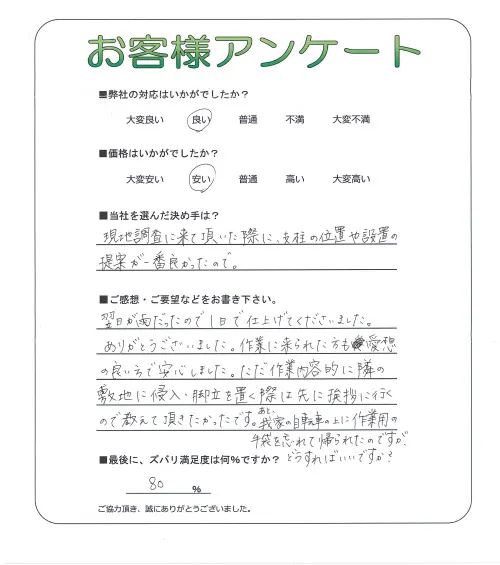 お客様アンケート
■弊社の対応はいかがでしたか？
大変良い 良い 普通 不満 大変不満
■価格はいかがでしたか？
大変安い 安い 普通 高い 大変高い
■当社を選んだ決め手は？
現地調査に来て頂いた際に、支柱の位置や設置の
提案が一番良かったので。
■ご感想・ご要望などをお書き下さい。
翌日が雨だったので1日で仕上げてくださいました。
ありがとうございました。作業に来られた方も愛想
の良い方で安心しました。ただ作業内容的に隣の
敷地に侵入・脚立を置く際は先に挨拶に行く
ので教えて頂きたかったです。あと、我家の自転車の上に作業用の
手袋を忘れて帰られたのですが、
どうすればいいですか？
■最後に、ズバリ満足度は何％ですか？
80 ％
ご協力頂き、誠にありがとうございました。